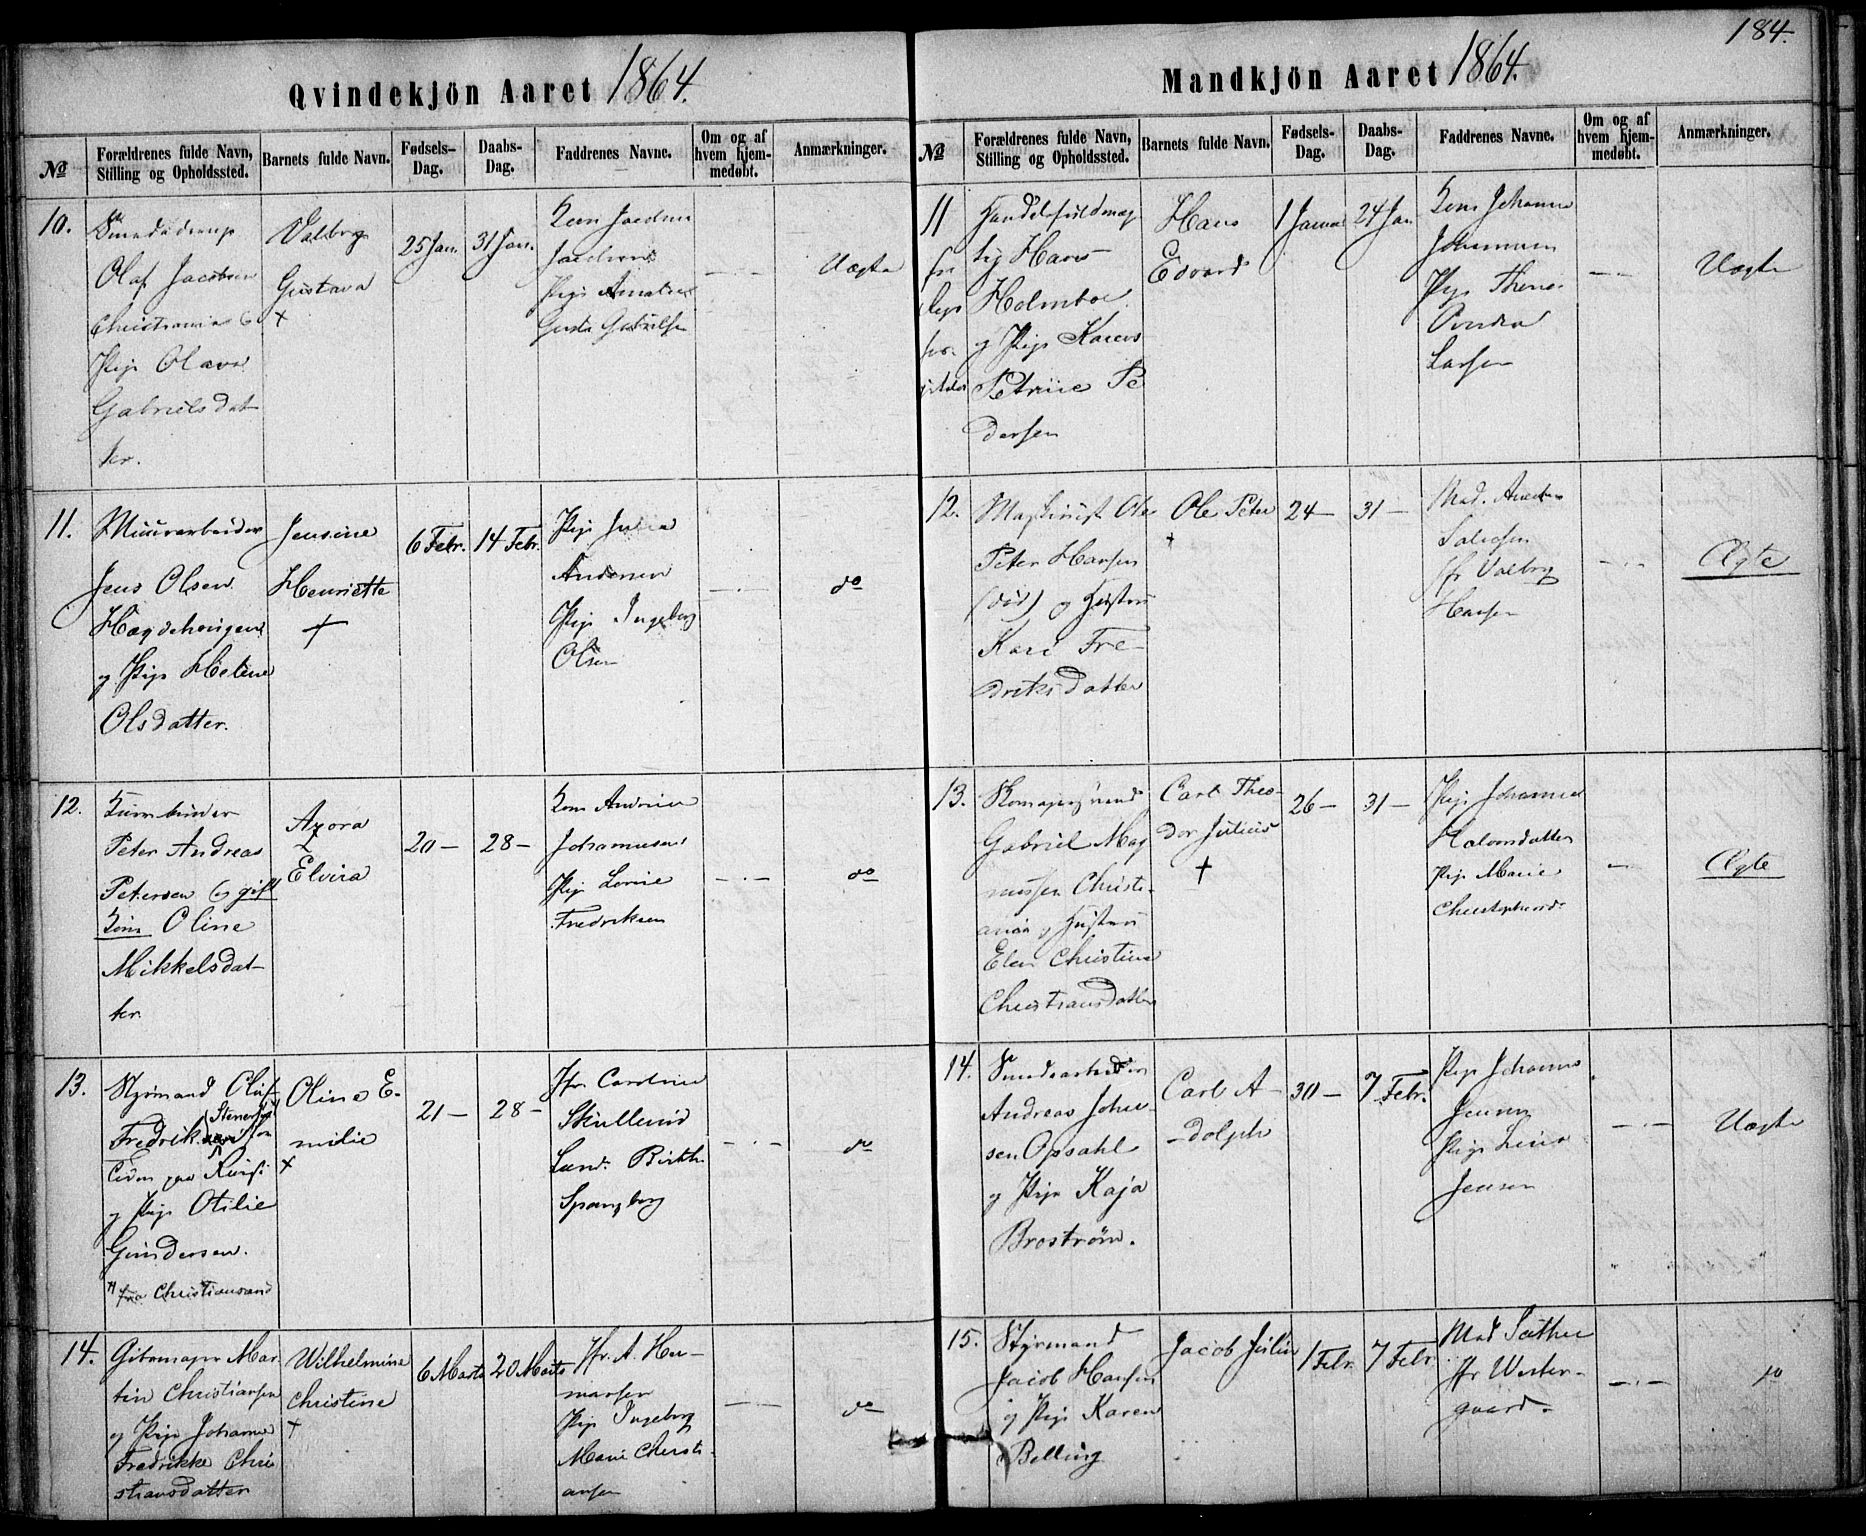 184.
Qvindekjön Aaret 1864.
No
Forældrenes fulde Navn,
Stilling og Opholdssted.
Barnets fulde Navn.
Fødsels-
Dag.
Daabs-
Dag.
Faddrenes Navne.
Om og af
hvem hjem-
medøbt.
Anmærkninger.
10.
Olaf Jacobsen
Christiania &
Pige Olava
Gabrielsdat
ter.
Valborg
Gustava
+
25 Jan.
31 Jan.
Kone
Pige Amalie
— . —
Uægte
11.
Muurarbeider
Jens Olsen
Hægdehougen
og Pige Helene
Olsdatter.
Jensine
Henriette
+
6 Febr.
14 Febr.
Pige Julia
Andersen
Pige Ingeborg
Olsen
— . —
do
12.
Peter Andreas
Petersen & gift
Kone Oline
Mikkelsdat-
ter
Azora
Elvira
20 —
28 —
Kone Andrine
Johannesen
Pige Lovise
Fredriksen
— . —
do
13.
Styrmand Oluf
Fredrik
og Pige Otilie
Gundersen.
fra Christiansand
Oline E-
milie
+
21 —
28 —
Jfr. Caroline
Lund. Birthe
Spangberg
— . —
do
14.
Mar
tin Christiansen
og Pige Johanne
Fredrikke Chri
stiansdatter
Wilhelmine
Christine
+
6 Marts
20 Marts
Jfr. A. Her-
mansen
Pige Ingeborg
Marie Christi-
ansen
— . —
do
Mandkjön Aaret 1864.
No
Forældrenes fulde Navn,
Stilling og Opholdssted.
Barnets fulde Navn.
Fødsels-
Dag.
Daabs-
Dag.
Faddrenes Navne.
Om og af
hvem hjem-
medøbt.
Anmærkninger.
11
Handelsfuldmæg
tig Hans
Holmboe
og Pige Karen
Petrine Pe
dersen
Hans
Edvard
1 Januar
24 Jan
Kone Johanne
Johannesen
Pige
Larsen
— . —
Uægte
12.
Maskinist Ole
Peter Hansen
(død) og Hustru
Kari Fre-
driksdatter
Ole Peter
+
24 —
31 —
Mad.
Jfr Valborg
Hansen
— . —
Ægte
13.
Skomagersvend
Gabriel Mag
nussen Christi-
ania og Hustru
Elen Christine
Christiansdatter
Carl Theo-
dor Julius
+
26 —
31 —
Pige Johanne
Halvorsdatter
Pige Marie
—
Ægte
14.
Andreas Johan-
sen Opsahl
og Pige Kaja
Broström.
Carl A-
-dolph
30 —
7 Febr.
Pige Johanne
Jensen
Pige Lina
Jensen
— . —
Uægte
15.
Styrmand
Jacob Hansen
og Pige Karen
Belling
Jacob Julius
1 Febr.
7 Febr
Mad Sæther
Jfr Wester-
gaard.
— . —
do